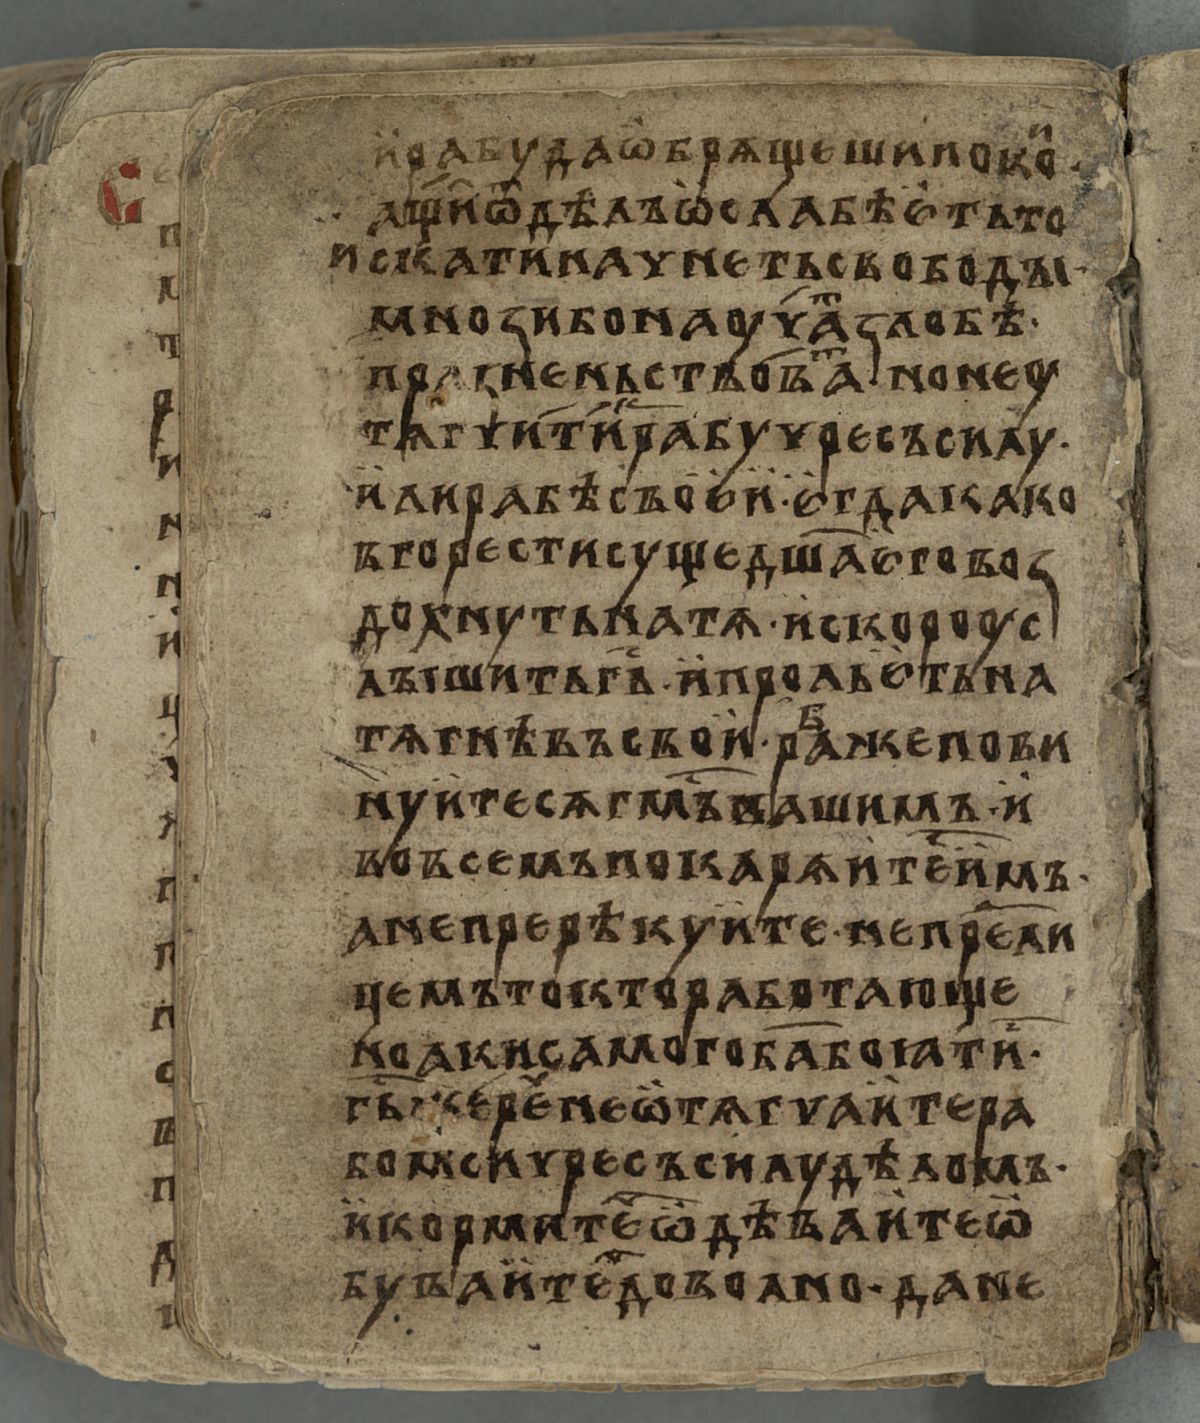 и҆рабудаѡ҆брѧщешипокои
ащиⷮѿдѣлъѡ҆слабѣѥ҆тьто
искатинаѵнетьсвободꙑ·
мноꙁибонаоуѵаⷮꙁлобѣ·
праꙁненьствоваⷮ·нонеоу
тѧгѵи҆тиⷤрабуѵресъсилу·
и҆лирабѣсвоѥ҆и·ѥ҆гдакако
вгорестисущедшаⷭ҇ѥговоꙁ
дохнутьнатѧ·и҆скорооус
лꙑшитьгⷭ҇ь·и҆прольѥ҆тьна
тѧгнѣвъсвои·рабⷤепови
нуи҆тесѧгⷭ҇мъвашимъ·и҆
вовсемъпокарѧитеⷭ҇и҆мъ·
анепрерѣкуи҆те·непреⷣли
цемътоктоработающе
ноакисамогоб҃абоꙗтиⷭ҇·
гь҃жереⷱ҇неѿтѧгѵаи҆тера
бомсиѵресъсилудѣломъ·
и҆кормитеⷯѡ҆дѣваи҆теѡ҆
буваи҆теⷯдоволно·дане